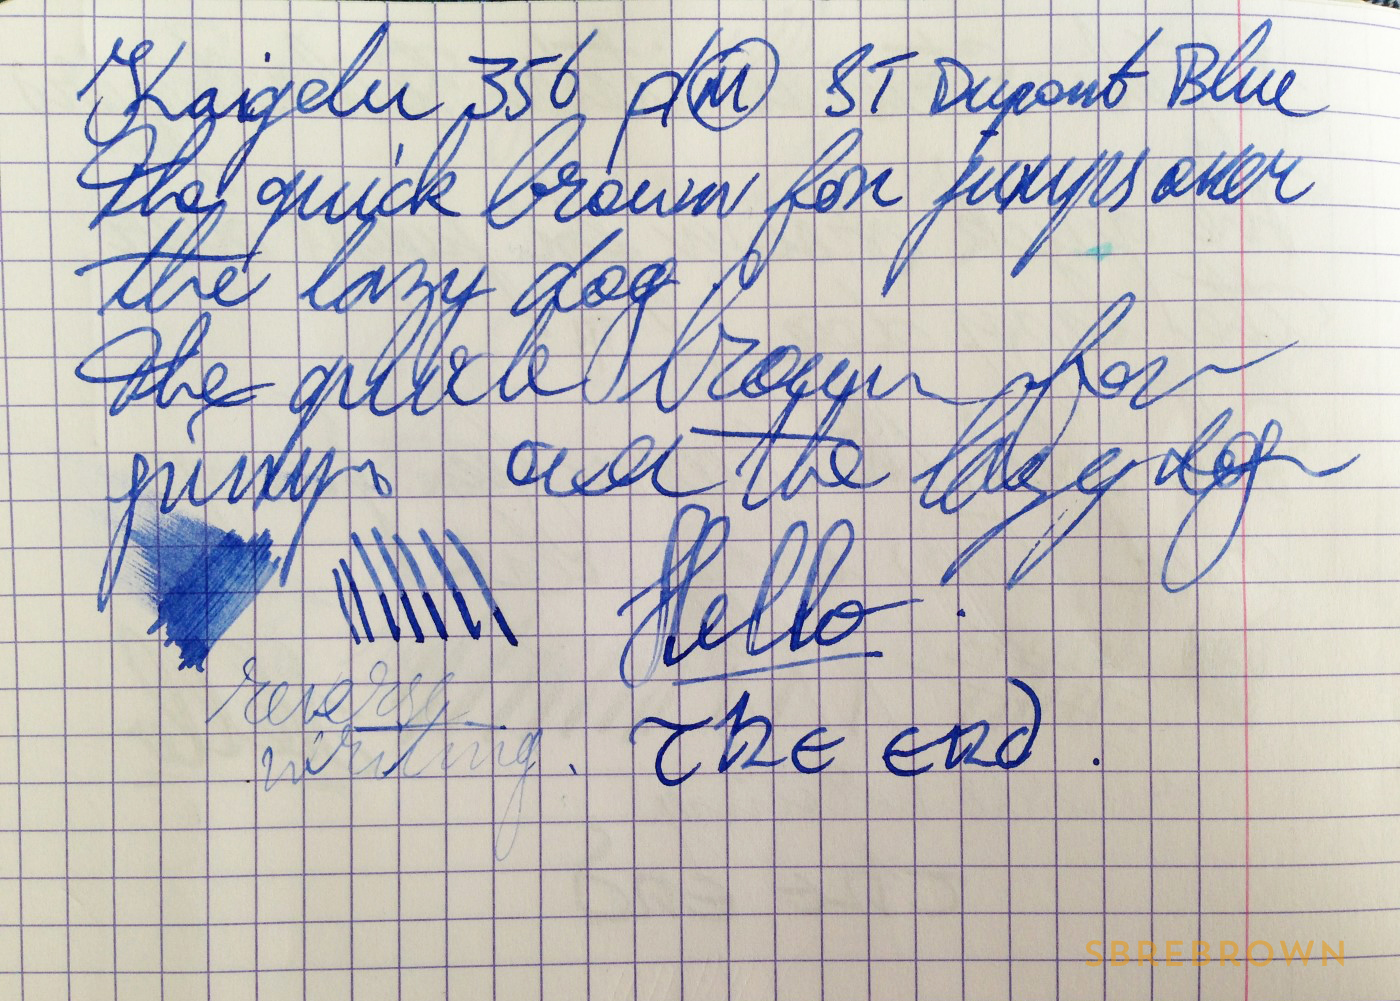 Kaigelu 356 (M) ST Dupont Blue
The quick brown fox jumps over
the lazy dog.
The quick brown fox
jumps over the lazy dog
Hello.
reverse
writing.
The end.
SBREBROWN